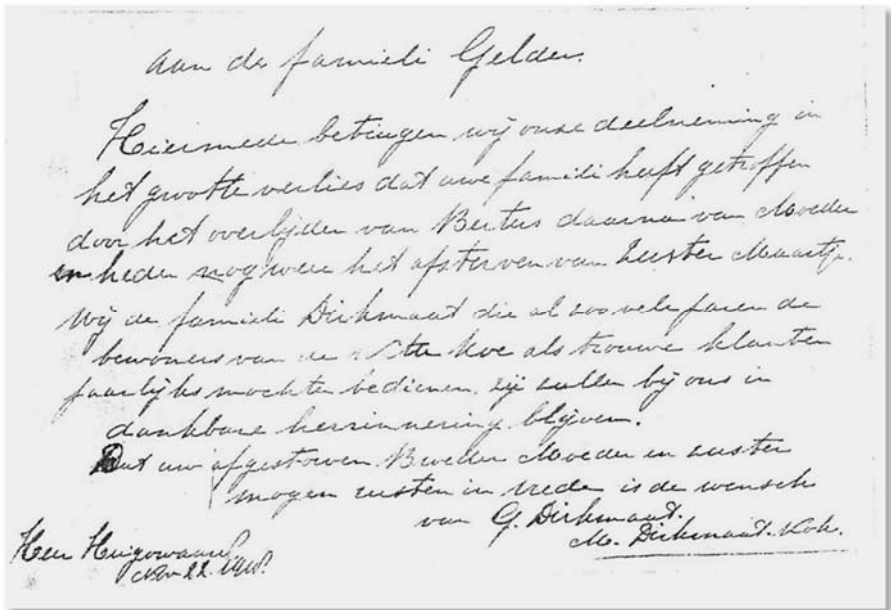 aan de famieli Gelder.
Hiermede betuigen wij onze deelneming in
het grootte verlies dat uwe famieli heeft getroffen
door het overlijden van Bertus daarna van Moeder
en heden nog weer het afsterven van Zuster Maartje.
Wij de famieli Dirkmaat die al zoo vele jaren de
bewoners van de Witte Koe als trouwe klanten
jaarlijks mochten bedienen. zij zullen bij ons in
dankbare herrinnering blijven.
Dat uw afgestorven Broeder Moeder en zuster
mogen rusten in vrede is de wensch
van G. Dirkmaat.
M. Dirkmaat-Kok.
Heer Hugowaard
Nov 22